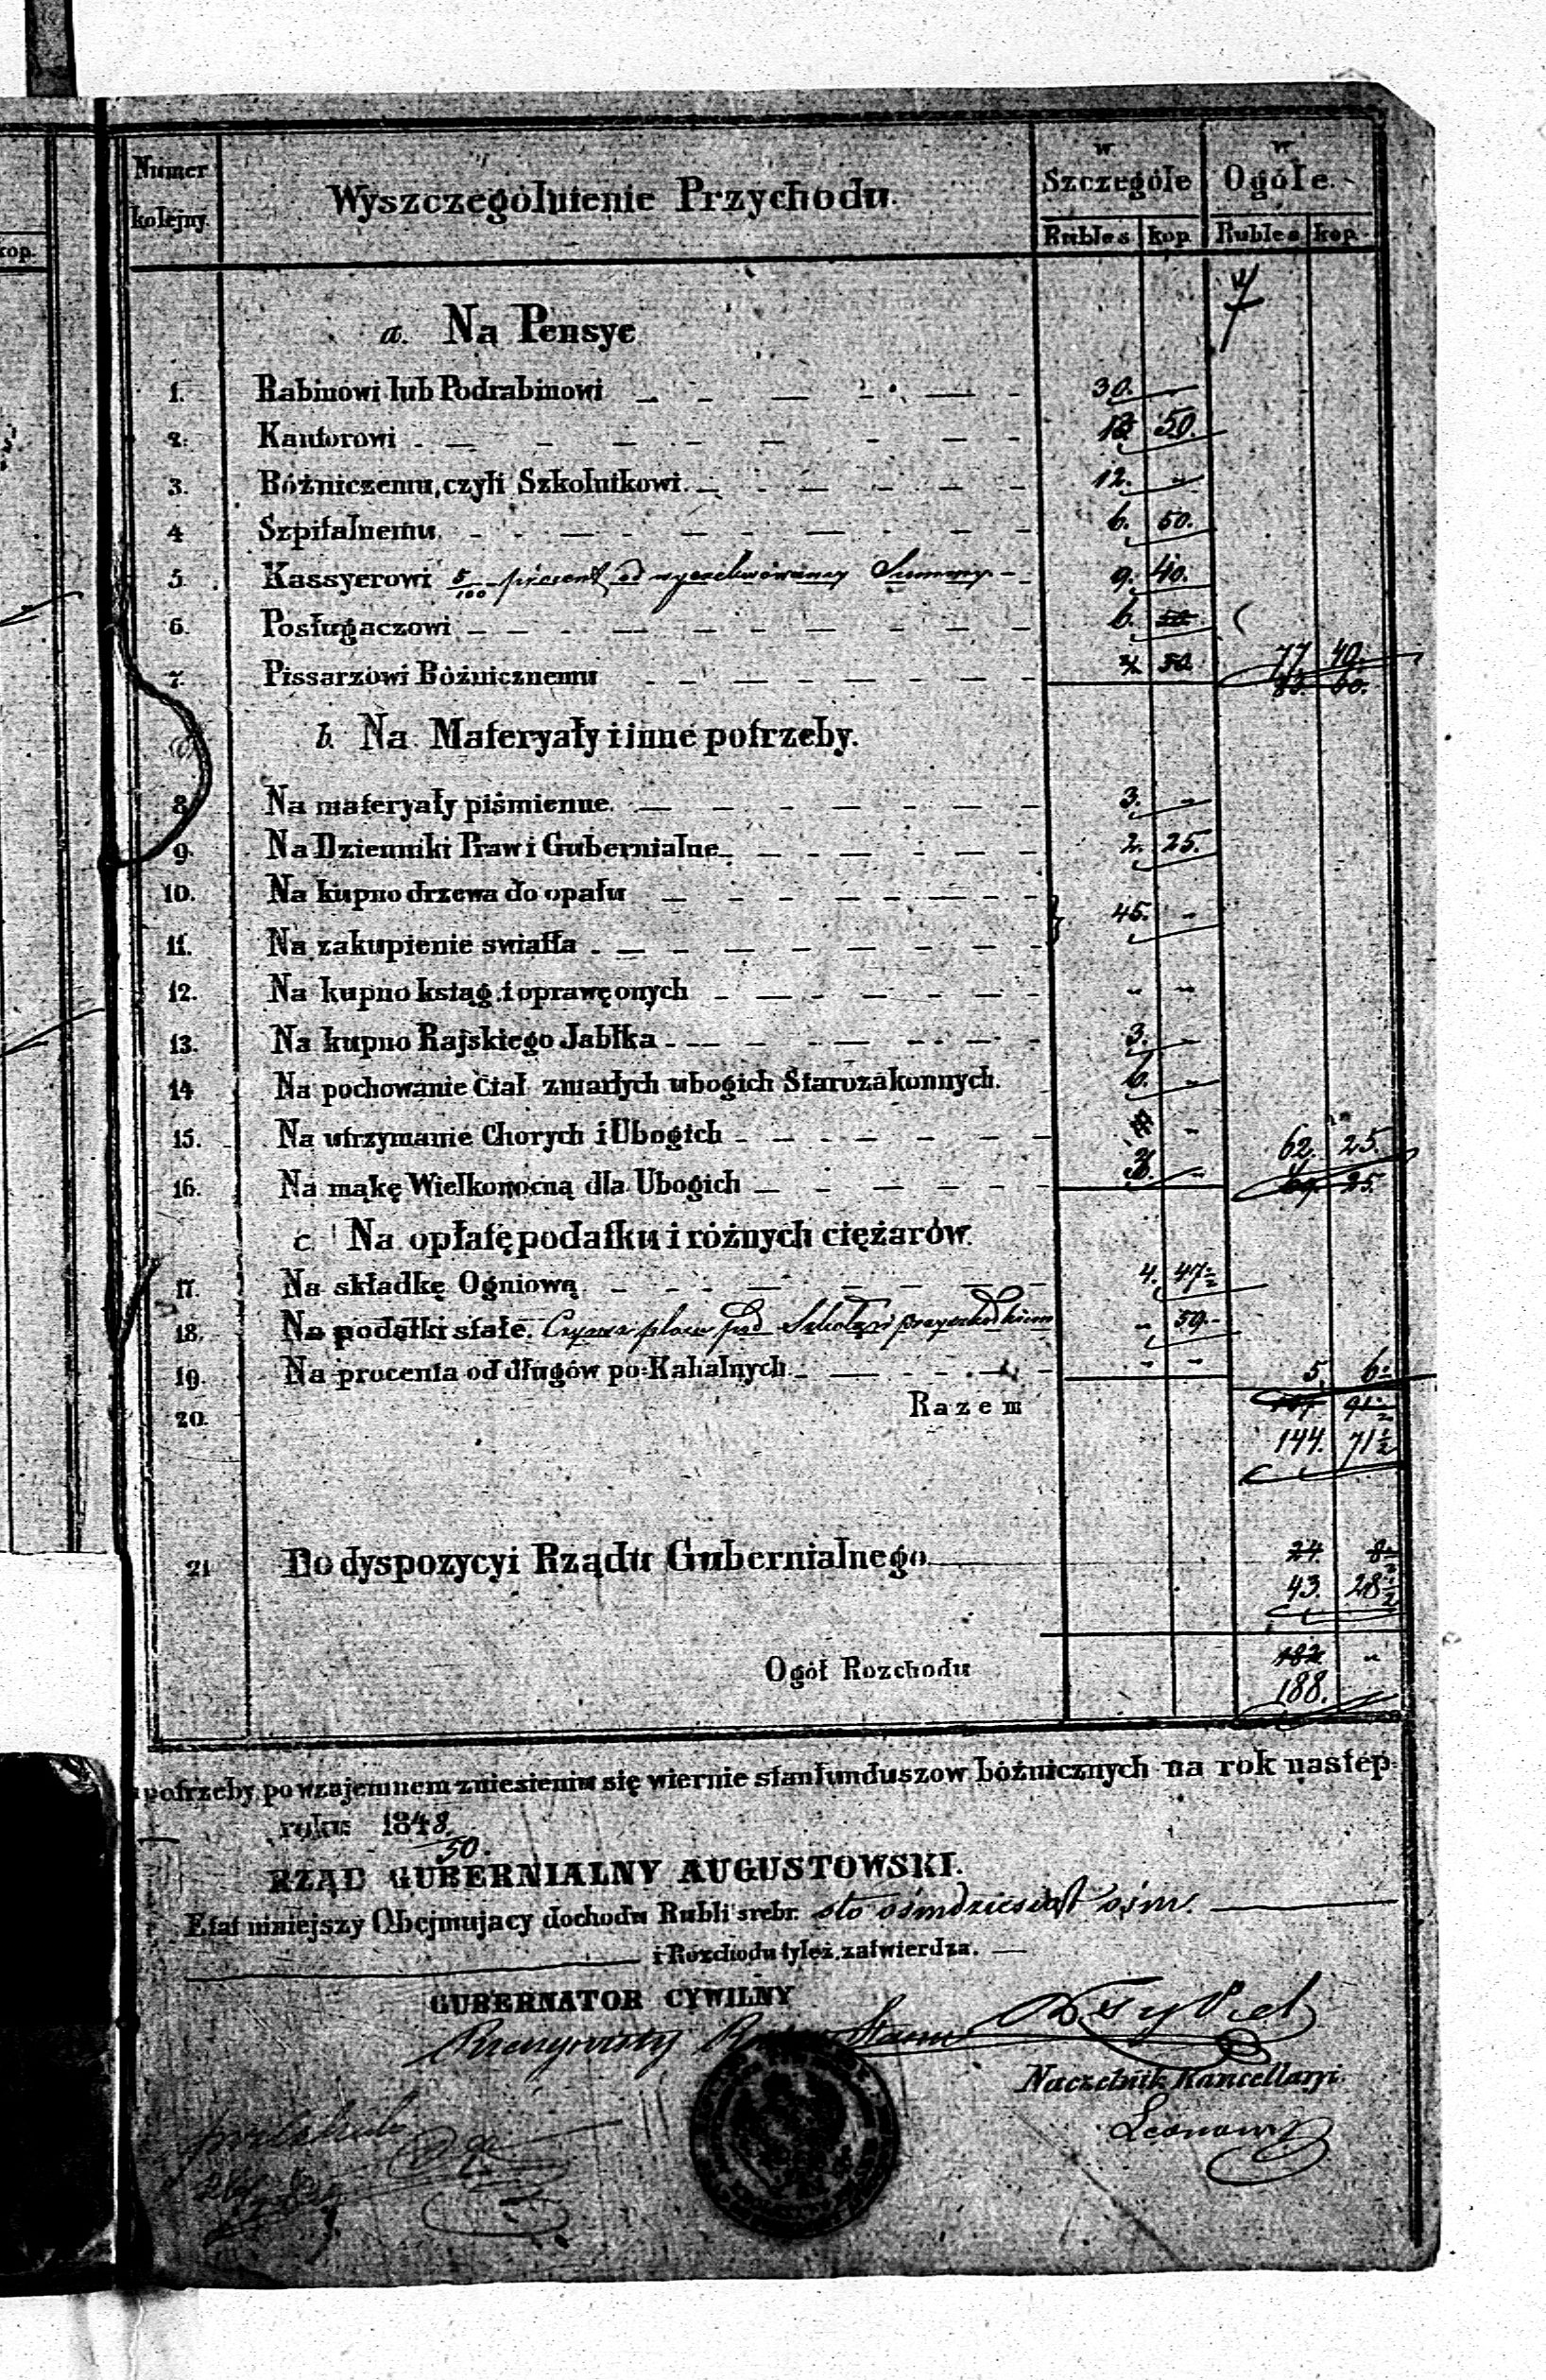 kop.
Numer kolejny. Wyszczególnienie Przychodu. w Szczególe w Ogóle.
Rubles kop. Rubles kop.
a. Na Pensye
1. Rabinowi lub Podrabinowi 30. -
2. Kantorowi 50.
3. Bóżniczemu, czyli Szkolnikowi. 12. -
4 Szpitalnemu. 6. 50.
5. Kassyerowi 5/100 procent od Summy 9. 40.
6. Posługaczowi 6. 50
7. Pissarzowi Bóżnicznemu 50. 77 40.
60.
b. Na Materyały i inne potrzeby.
8. Na materyały piśmienne. 3. -
9. Na Dzienniki Praw i Gubernialne. 2. 25.
10. Na kupno drzewa do opału
45. -
11. Na zakupienie swiatła
12. Na kupno ksiąg i oprawę onych - -
13. Na kupno Rajskiego Jabłka 3. -
14 Na pochowanie Ciał zmarłych ubogich Starozakonnych. 6. -
15. Na utrzymanie Chorych i Ubogich - 62. 25.
16. Na mąkę Wielkonocną dla Ubogich 3. - 69. 25.
c. Na opłatę podatku i różnych ciężarów.
17. Na składkę Ogniową 4. 47½
18. Na podatki stałe. Czynsz placu pod Szkołą i - 59.
19. Na procenta od długów po-Kahalnych - - 5. 6½
20. Razem 91½
144. 71½
21 Do dyspozycyi Rządu Gubernialnego 24. 8½
43. 28½
Ogół Rozchodu 182 -
188. -
potrzeby, po wzajemnem zniesieniu się wiernie stan funduszow bóżnicznych na rok następ-
roku 1848/50.
RZĄD GUBERNIALNY AUGUSTOWSKI.
Etat niniejszy Obejmujacy dochodu Rubli srebr. sto ośmdziesiąt ośm.
i Rozchodu tyleż, zatwierdza.
GUBERNATOR CYWILNY
Rzeczywisty Stanu
Naczelnik Kancellaryi.